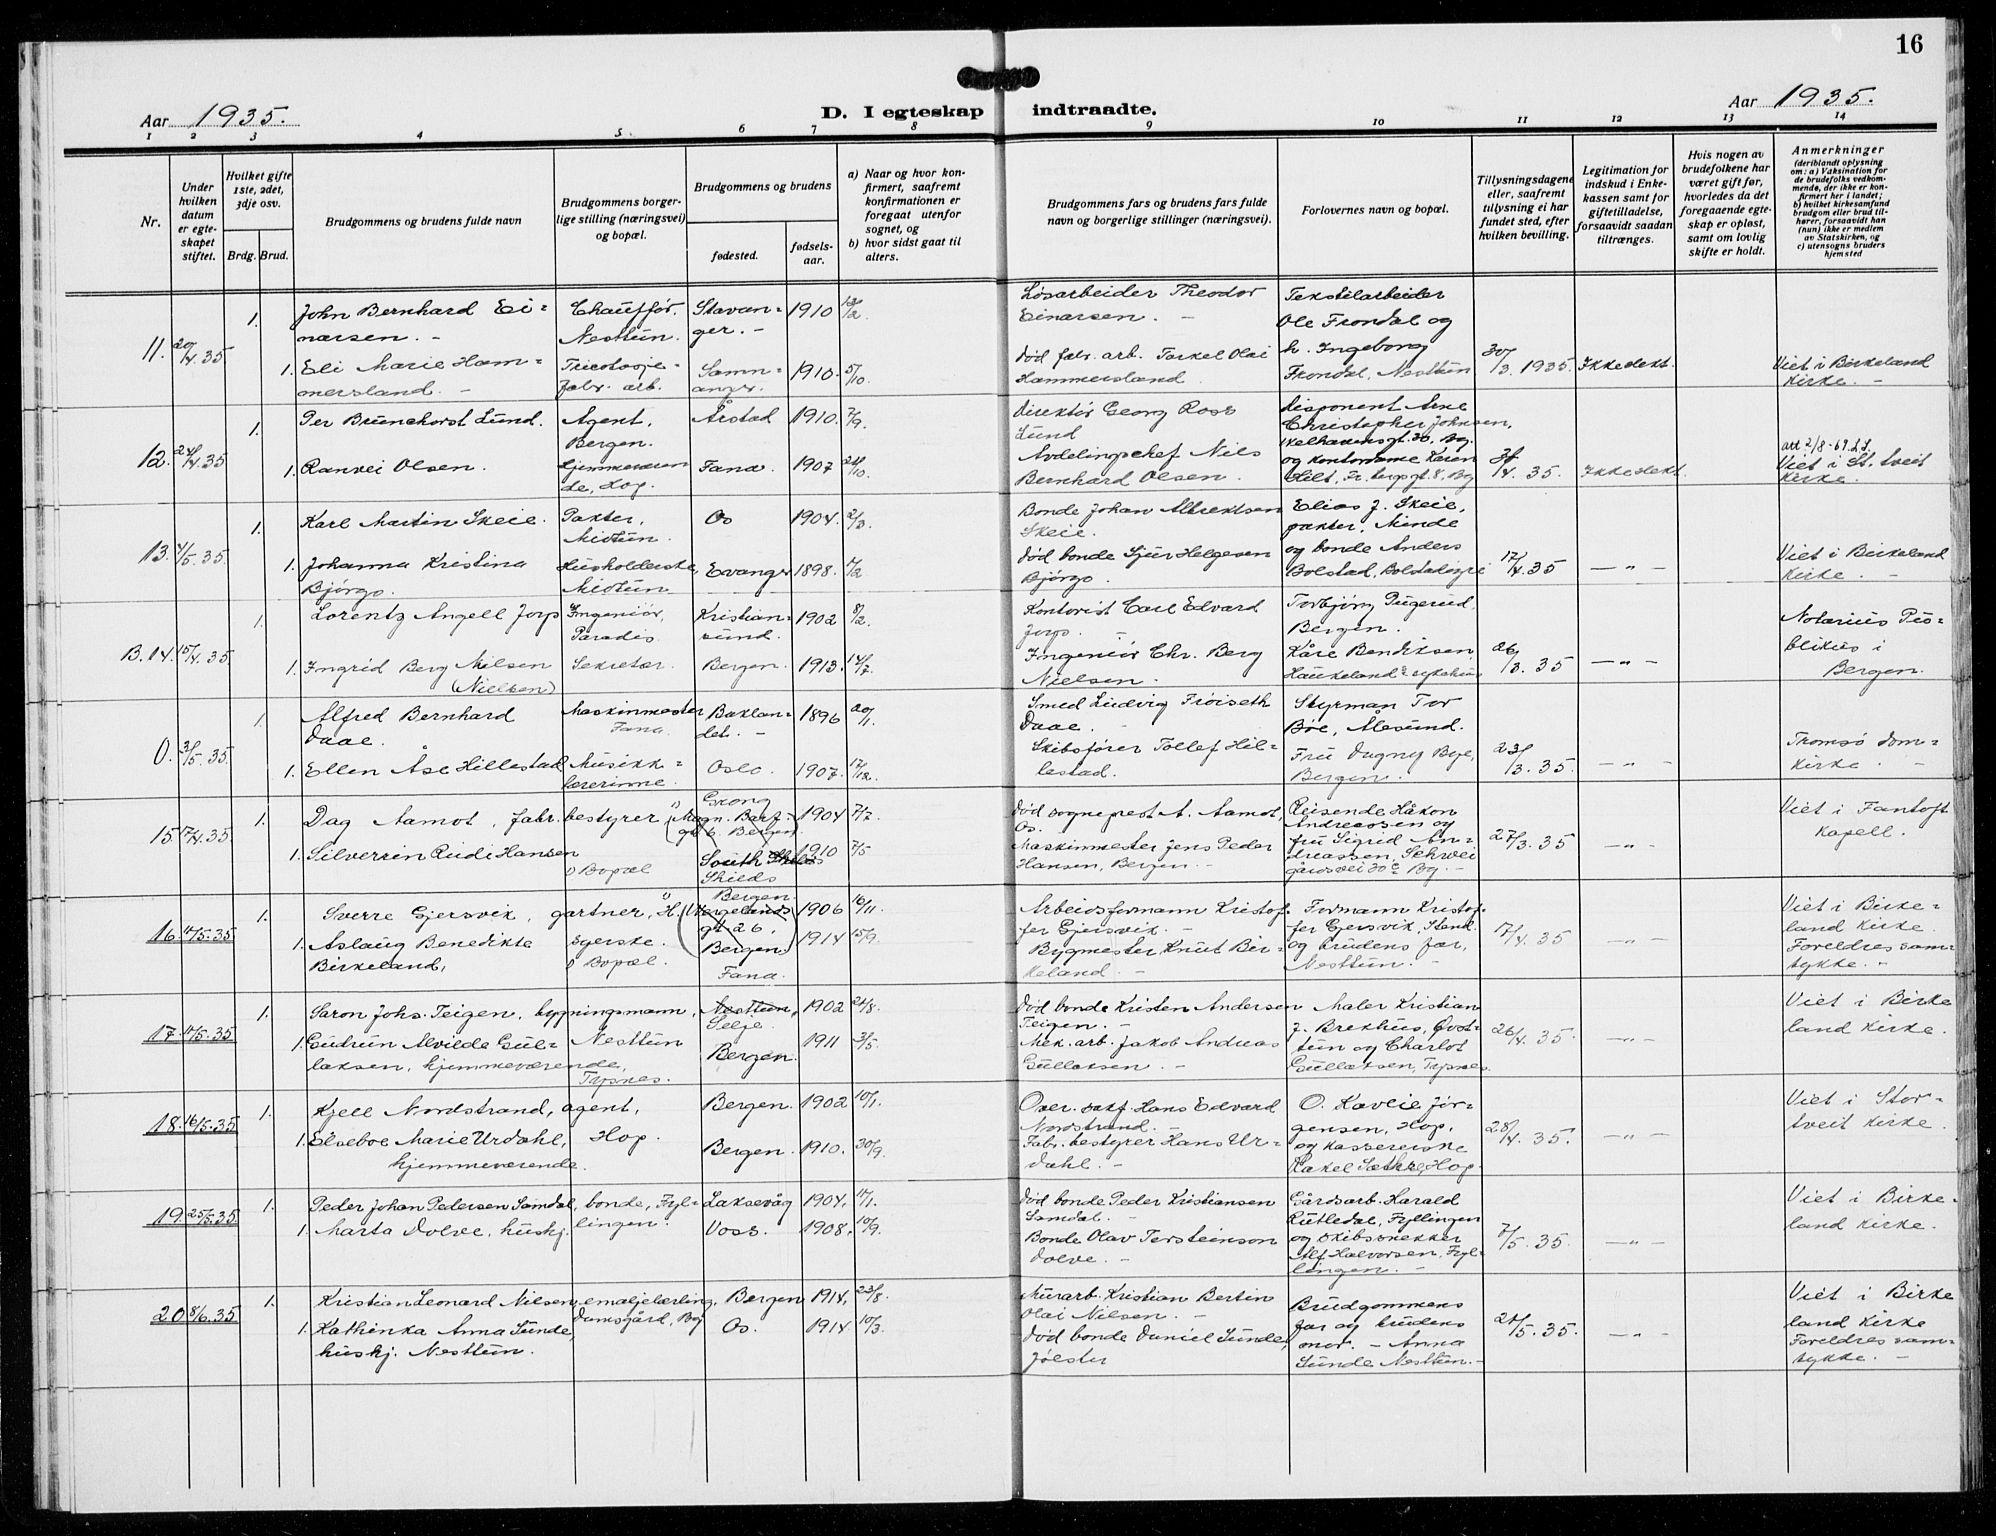 16
Aar 1935.
D. I egteskap indtraadte.
Aar 1935.
1 2 3 4 5. 6 7 8 9 10 11 12 13 14
Nr.
Under hvilken datum er egteskapet stiftet.
Hvilket gifte 1ste, 2det, 3dje osv.
Brdg. Brud.
Brudgommens og brudens fulde navn
Brudgommens borgerlige stilling (næringsvei) og bopæl.
Brudgommens og brudens
fødested.
fødselsaar.
a) Naar og hvor konfirmert, saafremt konfirmationen er foregaat utenfor sognet, og
b) hvor sidst gaat til alters.
Brudgommens fars og brudens fars fulde navn og borgerlige stillinger (næringsvei).
Forlovernes navn og bopæl.
Tillysningsdagene eller, saafremt tillysning ei har fundet sted, efter hvilken bevilling.
Legitimation for indskud i Enkekassen samt for giftetilladelse, forsaavidt saadan tiltrænges.
Hvis nogen av brudefolkene har været gift før, hvorledes da det foregaaende egteskap er opløst, samt om lovlig skifte er holdt.
Anmerkninger
(deriblandt oplysning om: a) Vaksination for de brudefolks vedkommende, der ikke er konfirmert her i landet; b) hvilket kirkesamfund brudgom eller brud tilhører, forsaavidt han (hun) ikke er medlem av Statskirken, og c) utensogns bruders hjemsted
11. 20/4 35 1. John Bernhard Einarsen. - Chauffør. Nesttun. Stavanger. - 1910 13/2. Løsarbeider Theodor Einarsen. - Tekstilarbeider Ole Frondal og
1. Eli Marie Hammersland. - Tricotasjefabr. arb. Samnanger. 1910. 5/10. Død fabr. arb. Torkel Olai Hammersland. h. Ingeborg Frondal, Nesttun 30/3. 1935. Ikke dekt. Viet i Birkeland Kirke. -
12. 24/4. 35 1. Per Brunchorst Lund. Agent, Bergen. Årstad 1910. 7/9. Direktör Georg Ross Lund Disponent Arne Christopher Johnsen, kelhavensgt. 30, Bg.
1. Ranvei Olsen. Hjemmeværende, Hop. Fana. 1907 24/10. Avdelingschef Nils Bernhard Olsen. og kontordame Karen Hilt, Fr. bergsgt. 8, Bg /4. 35. Ikke dekt. att 2/8-69. Viet i St. tveit Kirke.
13. 4/5. 35 1. Karl Martin Skeie. Pakter, Midtun. Os 1904. 2/3. Bonde Johan Albrektsen Skeie. Elias J. Skeie, pakter, Minde
1. Johanna Kristina Bjørgo. Husholderske, Midtun. Evanger 1898. /2 Død bonde Sjur Helgesen Bjørgo. og bonde Anders Bolstad, Bolstadøyri 17/4. 35 — „ — Viet i Birkeland Kirke. -
B. 14. 15/4. 35. 1. Lorentz Angell Jorp Ingeniör, Paradis Kristiansund. 1902 8/2. Kontorist Carl Edvard Jorp. - Torbjörg Pugerud, Bergen.
1. Ingrid Berg Nilsen (Nielsen) Sekretær. Bergen. 1913. 14/7. Ingeniör Chr. Berg Nielsen. Kåre Bendiksen, Haukeland sykehus 26/3. 35 — „ — Notarius Publikus i Bergen.
0. 3/5. 35. 1. Alfred Bernhard Daae. Maskinmester Fana. Baklandet. - 1896 20/1. Smed Ludvig Frøiseth Daae. Styrman Tor Bøe, Ålesund.
1. Ellen Åse Hillestad Musikklærerinne. Oslo. 1907. 17/12. Skibsfører Tollef Hillestad. Fru Dagny Bye, Bergen. 23/3. 35. — „ — Tromsø Domkirke. -
15 17/4. 35 1. Dag Aamot, fabr. bestyrer Grong (Magn. Barf. gt 6. Bergen. 1904 7/7. Død sogneprest A. Aamot, Os. Reisende Håkon Andreassen og
1. Silverrin Rudi Hansen Bopæl South Shilds Shields 1910 7/5 Maskinmester Jens Peder Hansen, Bergen. - fru Sigrid Andreassen, gårdsvei 30 c Bg. - 27/3. 35 — „ — Viet i Fantoft Kapell.
16. 11/5. 35 1. Sverre Gjersvik, gartner, H. (Wergelands gt 26, Bergen) Bergen. 1906 16/11. Arbeidsformann Kristoffer Gjersvik. - Formann Kristoffer Gjersvik,
1. Aslaug Benedikte Birkeland, Bopæl. Fana. 1914 15/9. Bygmester Knut Birkeland. - og brudens far, Nesttun. - /4. 35 — „ — Viet i Birkeland Kirke. Foreldres samtykke. -
17. 11/5. 35 1. Saron Johs. Teigen, bygningsmann, Nesttun, Selje. 1902 24/8. Død bonde Kristen Andersen Teigen. - Maler Kristian J. Brekhus,
1. Gudrun Alvilde Gullaksen, hjemmeværende, Tysnes. Nesttun Bergen. 1911 3/5. Mek. arb. Jakob Andreas Gullaksen. - og Charlot Gullaksen, Tysnes. 26/4. 35. — „ — Viet i Birkeland Kirke.
18. 16/5. 35 1. Kjell Nordstrand, agent, Hop. Bergen. 1902 10/1. Over. sakf. Hans Edvard Nordstrand. - O. Kavlie Jørgensen, Hop,
1. Elseboe Marie Urdahl, hjemmeværende. Bergen. 1910. 30/9. Fabr. bestyrer Hans Urdahl. - og kassererske Rakel Sæthre, Hop - 28/4. 35. — „ — Viet i Stortveit Kirke.
19. 25/5. 35. 1. Peder Johan Pedersen Samdal, bonde, Fyllingen. Laksevåg 1904. 17/1. Død bonde Peder Kristiansen Samdal. - Gårdsarb. Harald Rutledal, Fyllingen
1. Marta Dolve, hushj. Voss. 1908. 10/9. Bonde Olav Torsteinson Dolve. - og skibssnekker Alf Halvorsen, Fyllingen. - 7/5. 35. — „ — Viet i Birkeland Kirke.
20 8/6. 35 1. Kristian Leonard Nilsen, emaljelærling, Damsgård, Bg Bergen 1914. 23/8. Murarb. Kristian Bertin Olai Nilsen. - Brudgommens far og brudens
1. Kathinka Anna Sunde, hushj. Nesttun. Os. 1914 10/3. Død bonde Daniel Sunde, Jølster mor. - Anna Sunde Nesttun. - 21/5. 35. — „ — Viet i Birkeland Kirke Foreldres samtykke. -